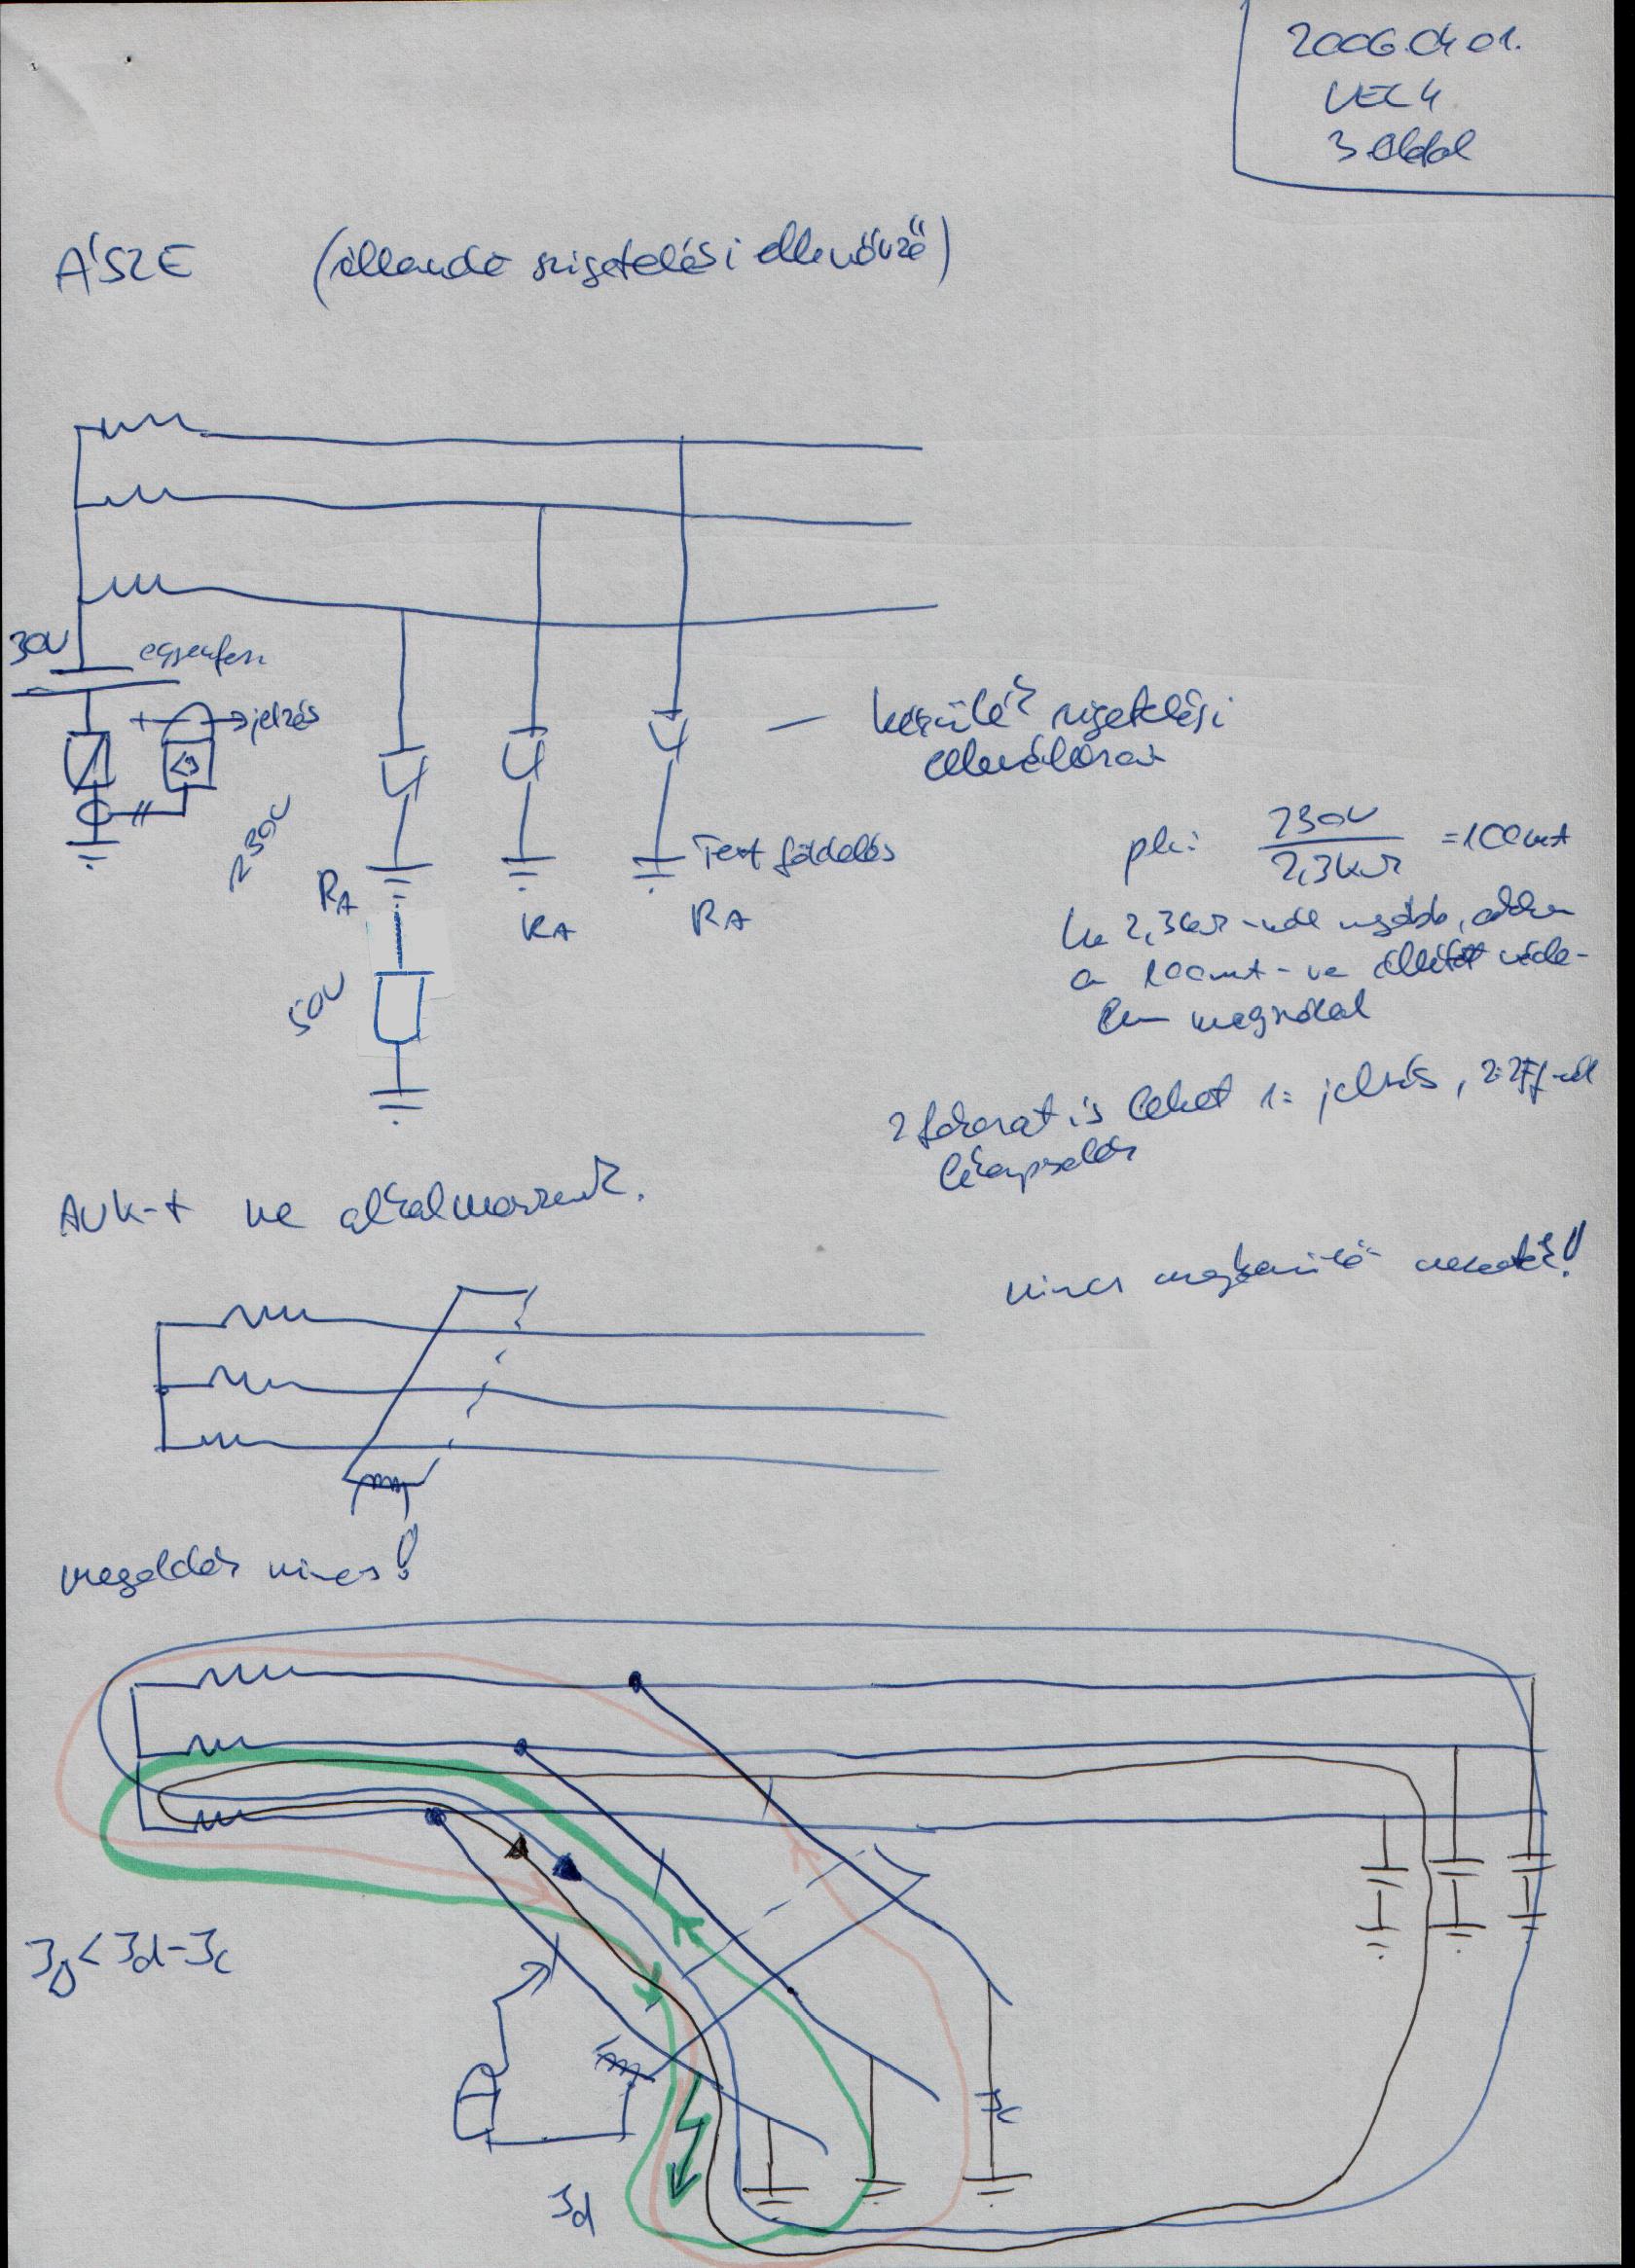 2006.04.01.
VEC 4
3. oldal
ÁSZE (állandó szigetelési ellenőrző)
30V
egyenfesz
+ → jelzés
230V
RA
RA
Test földelés
RA
50V
— készülék szigetelési
ellenállásai
pl.: 230V / 2,3kΩ = 100mA
ha 2,3kΩ-nál
a 100mA-re állított véde-
lem megszólal
2 fokozat is lehet 1: jelzés, 2:
lekapcsolás
ÁVK-t ne alkalmazzunk.
nincs megkerülő vezeték!
megoldás nincs!
IΔ < Id - Ic
Ic
Id